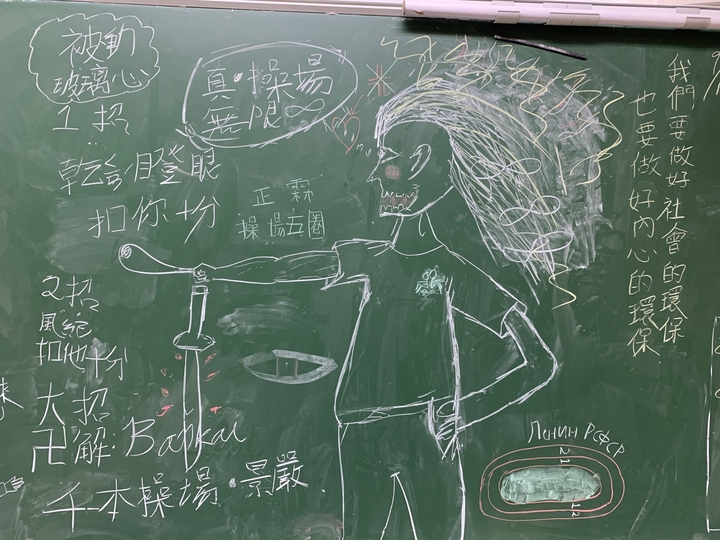 被動
玻璃心
1招
乾爸瞪眼
扣你十分
真·操場
無限∞
正霖
操場五圈
2招
風紀
扣他十分
大招
卍解:Bankai
千本操場·景嚴
我們要做好社會的環保
也要做好內心的環保
Ленин РСФСР
21
12